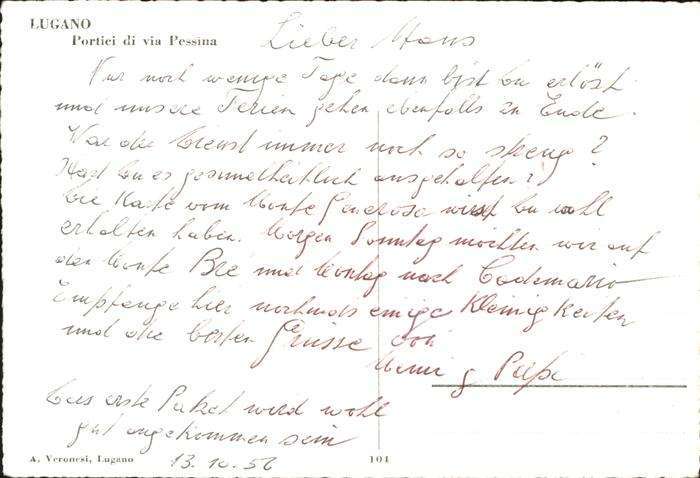 LUGANO
Portici di via Pessina
Lieber Hans
Nur noch wenige Tage dann bist Du erlöst
und unsere Ferien gehen ebenfalls zu Ende.
War der Dienst immer noch so streng?
Hast Du es gesundheitlich ausgehalten?
Die Karte vom Monte Generoso wirst Du wohl
erhalten haben. Morgen Sonntag möchten wir auf
den Monte Bré und Montag nach Cademario
Empfange hier nochmals einige Kleinigkeiten
und die besten Grüsse von
Mami & Papi
Das erste Paket wird wohl
gut angekommen sein
13.10.56
A. Veronesi, Lugano
101